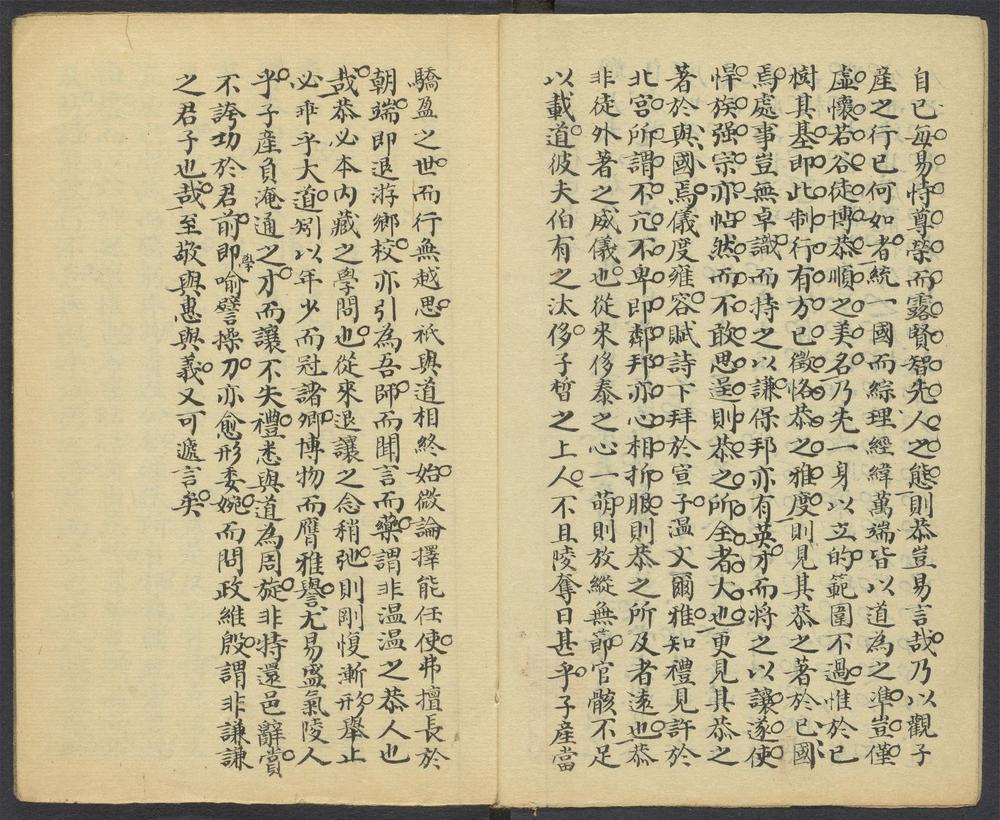 自已每易恃尊榮而露賢智先人之態則恭豈易言哉乃以觀子
產之行已何如者統一國而綜理經緯萬端皆以道為之準豈僅
虛懷若谷徒博恭順之美名乃先一身以立的範圍不過惟於已
樹其基即此制行有方已徵恪恭之雅度則見其恭之著於已國
焉處事豈無卓識而持之以謙保邦亦有英才而將之以讓遂使
悍族强宗亦帖然而不敢思逞則恭之所全者大也更見其恭之
著於與國焉儀度雍容賦詩下拜於宣子温文爾雅知禮見許於
北宮所謂不亢不卑即鄰邦亦心相折服則恭之所及者遠也恭
非徒外著之威儀也從來侈泰之心一萌則放縱無節官骸不足
以載道彼夫伯有之汰侈子晳之上人不且陵奪日甚乎子產當
驕盈之世而行無越思祇與道相終始微論擇能任使弗擅長於
朝端即退游鄉校亦引為吾師而聞言而藥謂非温温之恭人也
哉恭必本內藏之學問也從來退讓之念稍弛則剛愎漸形舉止
必乖乎大道矧以年少而冠諸卿博物而膺雅譽尤易盛氣陵人
乎子產負淹通之才而讓不失禮悉與道為周旋非特還邑辭賞
不誇功於君前即喻譬學操刀亦愈形委婉而問政維殷謂非謙謙
之君子也哉至敬與惠與義又可遞言矣